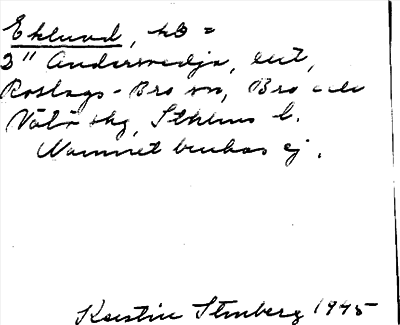 Eklund, ld =
3" Andersvedja, lut,
Roslags-Bro sn, Bro och
Vätö skg, Sthlms l.
Namnet brukas ej.
Kerstin Stenberg 1945